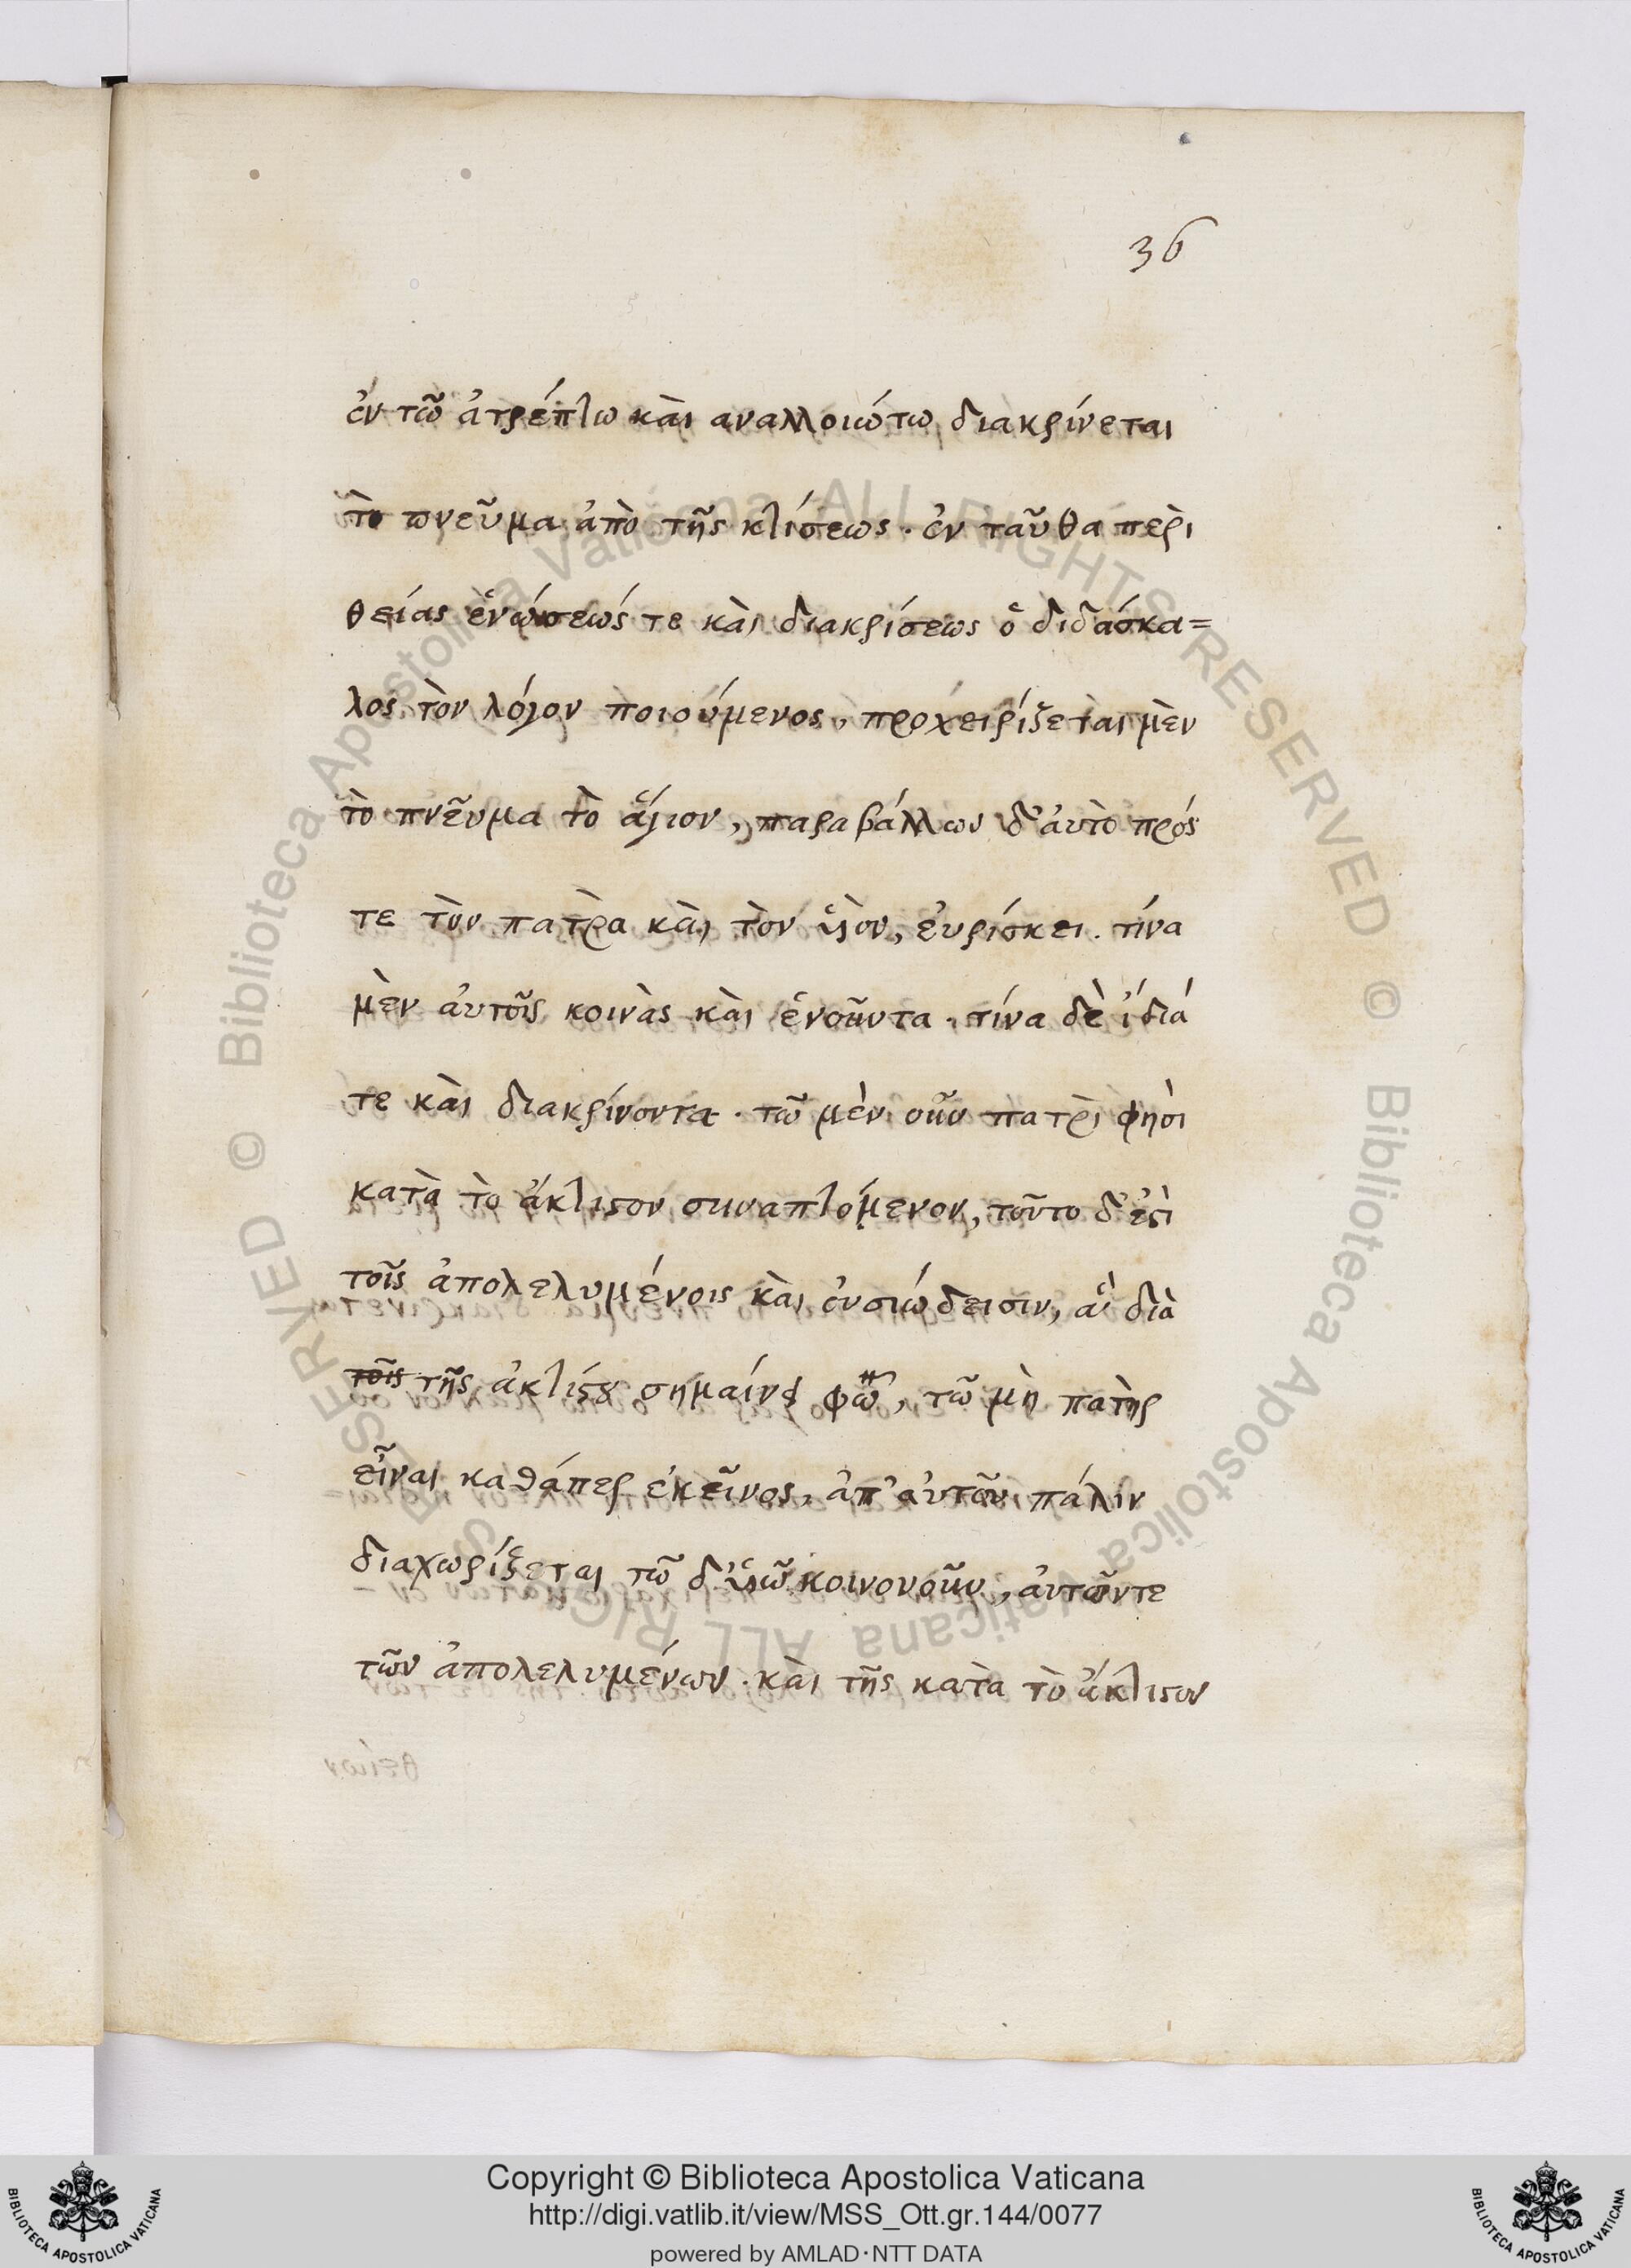 36
ἐν τῶ ἀτρέπτω κὰι αναλλοιώτω διακρίνεται
τὸ πνεῦμα ἀπὸ τῆς κτίσεως. ἐν ταῦθα περὶ
θείας ἑνώσεώς τε κὰι διακρίσεως ὁ διδάσκα=
λος τὸν λόγον ποιούμενος, προχειρίζεται μὲν
τὸ πνεῦμα τὸ ἅγιον, παραβάλλων δ' ἀυτὸ πρός
τε τὸν πατὲρα κὰι τὸν ὑιὸν, ἑυρίσκει. τίνα
μὲν ἀυτοῖς κοινὰς κὰι ἑνοῦντα. τίνα δὲ ἰδιά
τε κὰι διακρίνοντα. τῶ μὲν οὖν πατρὶ φησὶ
κατὰ τὸ ἄκτιστον συναπτόμενον, τοῦτο δ' ἐστὶ
τοῖς ἀπολελυμένοις κὰι ὀυσιώδεισιν, ἃ διὰ
τοῖς τῆς ἀκτίστου σημαίνει φω, τῶ μὴ πατὴρ
εἶναι καθάπερ ἐκεῖνος, ἀπ' ἀυτοῦ πάλιν
διαχωρίζεται τῶ δ' ὑιῶ κοινονοῦν, ἀυτῶντε
τῶν ἀπολελυμένων. κὰι τῆς κατὰ τὸ ἄκτιστον
Copyright © Biblioteca Apostolica Vaticana
http://digi.vatlib.it/view/MSS_Ott.gr.144/0077
powered by AMLAD·NTT DATA
BIBLIOTECA APOSTOLICA VATICANA
BIBLIOTECA APOSTOLICA VATICANA
© Biblioteca Apostolica Vaticana ALL RIGHTS RESERVED
© Biblioteca Apostolica Vaticana ALL RIGHTS RESERVED